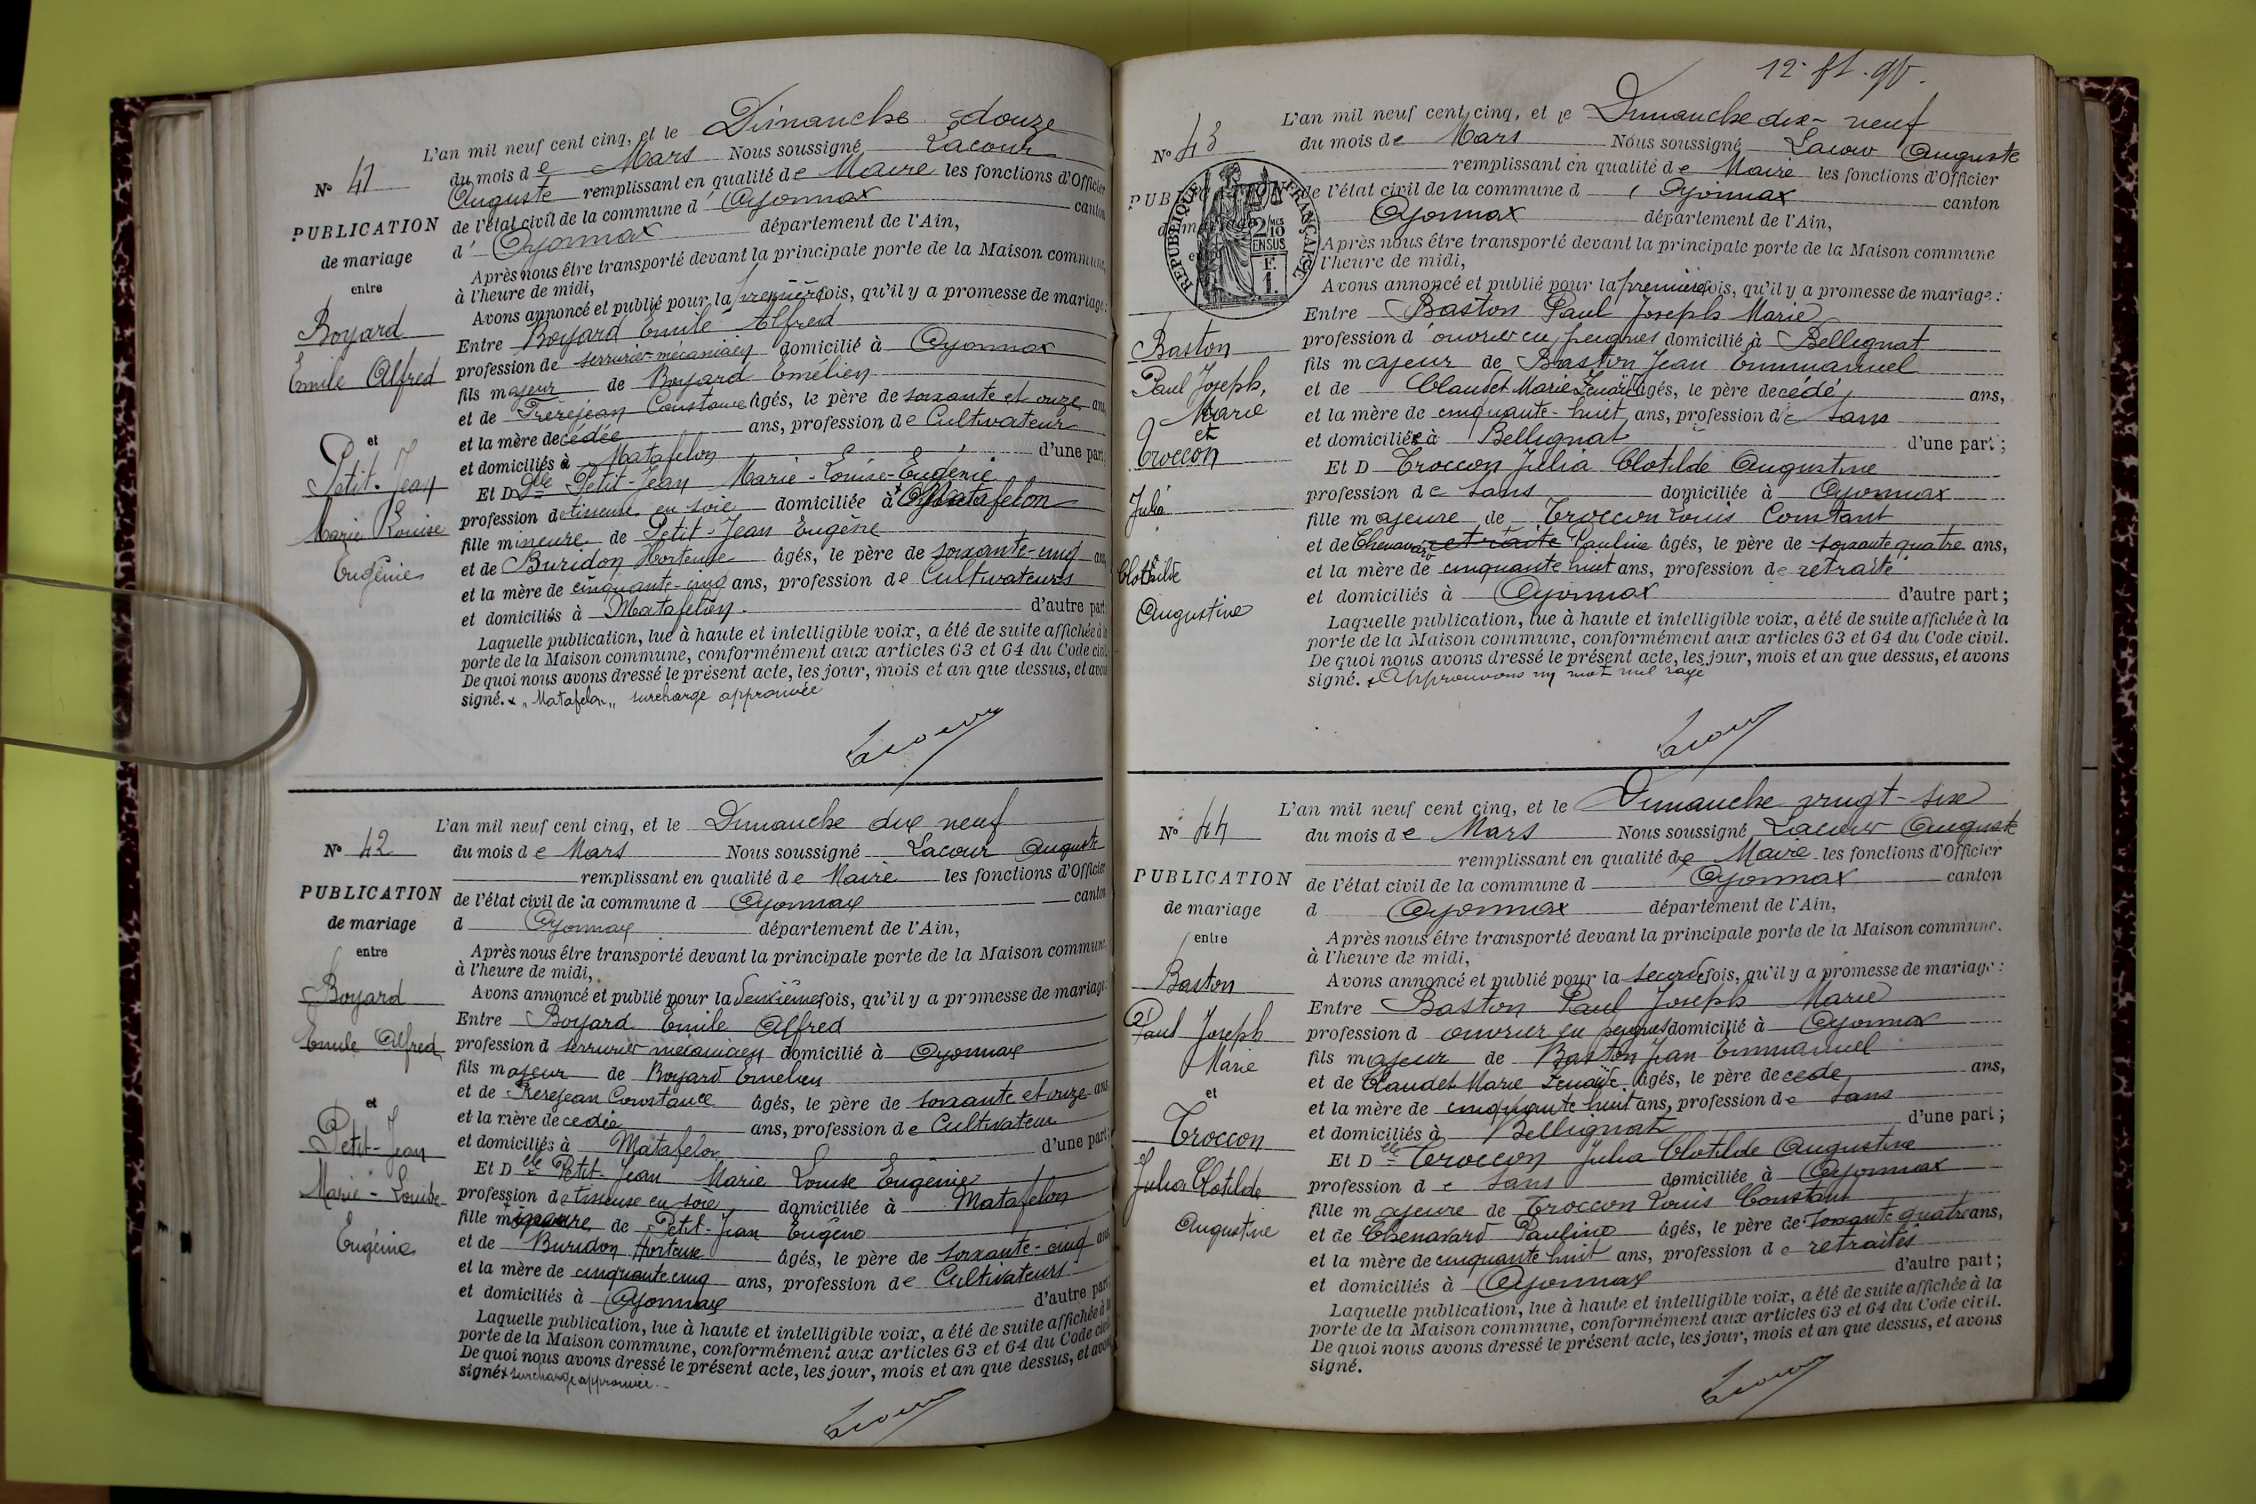 L'an mil neuf cent cinq, et le Dimanche douze
du mois de Mars Nous soussigné Lacour
Auguste remplissant en qualité de Maire les fonctions d'Officier
de l'état civil de la commune d'Oyonnax canton
d'Oyonnax département de l'Ain,
N° 41
PUBLICATION
de mariage
entre
Boyard
Emile Alfred
et
Petit-Jean
Marie Louise
Eugénie
Après nous être transporté devant la principale porte de la Maison commune,
à l'heure de midi,
Avons annoncé et publié pour la première fois, qu'il y a promesse de mariage:
Entre Boyard Emile Alfred
profession de serrurier-mécanicien domicilié à Oyonnax
fils majeur de Boyard Emélien
et de Frèrejean Constance âgés, le père de soixante et onze ans
et la mère decédée ans, profession de Cultivateur
et domiciliés à Matafelon d'une part
Et Delle Petit-Jean Marie-Louise-Eugénie
profession de tisseuse en soie domiciliée à Matafelon
fille mineure de Petit-Jean Eugène
et de Buridon Hortense âgés, le père de soixante-cinq ans
et la mère de cinquante-cinq ans, profession de Cultivateurs
et domiciliés à Matafelon. d'autre part;
Laquelle publication, lue à haute et intelligible voix, a été de suite affichée à la
porte de la Maison commune, conformément aux articles 63 et 64 du Code civil.
De quoi nous avons dressé le présent acte, les jour, mois et an que dessus, et avons
signé. x "Matafelon" surcharge approuvée
Lacour
L'an mil neuf cent cinq, et le Dimanche dix neuf
du mois de Mars Nous soussigné Lacour Auguste
remplissant en qualité de Maire les fonctions d'Officier
de l'état civil de la commune d Oyonnax canton
d Oyonnax département de l'Ain,
N° 42
PUBLICATION
de mariage
entre
Boyard
Emile Alfred
et
Petit-Jean
Marie-Louise
Eugénie
Après nous être transporté devant la principale porte de la Maison commune,
à l'heure de midi,
Avons annoncé et publié pour la deuxième fois, qu'il y a promesse de mariage:
Entre Boyard Emile Alfred
profession d serrurier mécanicien domicilié à Oyonnax
fils majeur de Boyard Emelien
et de Frèrejean Constance âgés, le père de soixante et onze ans
et la mère decedée ans, profession de Cultivateur
et domiciliés à Matafelon d'une part
Et Delle Petit-Jean Marie Louise Eugénie
profession de tisseuse en soie domiciliée à Matafelon
fille mineure de Petit-Jean Eugène
et de Buridon Hortense âgés, le père de soixante-cinq ans
et la mère de cinquante cinq ans, profession de Cultivateurs
et domiciliés à Oyonnax d'autre part;
Laquelle publication, lue à haute et intelligible voix, a été de suite affichée à la
porte de la Maison commune, conformément aux articles 63 et 64 du Code civil
De quoi nous avons dressé le présent acte, les jour, mois et an que dessus, et avons
signé x surcharge approuvée.
Lacour
L'an mil neuf cent cinq, et le Dimanche dix-neuf
du mois de Mars Nous soussigné Lacour Auguste
remplissant en qualité de Maire les fonctions d'Officier
de l'état civil de la commune d Oyonnax canton
Oyonnax département de l'Ain,
N° 43
PUBLICATION
de mariage
RÉPUBLIQUE FRANÇAISE
2 MES
10
EN SUS
F.
1.
Baston
Paul Joseph,
Marie
et
Troccon
Julia
Clothilde
Augustine
Après nous être transporté devant la principale porte de la Maison commune
l'heure de midi,
Avons annoncé et publié pour la première fois, qu'il y a promesse de mariage:
Entre Baston Paul Joseph Marie
profession d'ouvrier en peignes domicilié à Bellignat
fils majeur de Baston Jean Emmanuel
et de Claudet Marie Zenaïde âgés, le père decédé ans,
et la mère de cinquante-huit ans, profession de sans
et domiciliée à Bellignat d'une part;
Et D Troccon Julia Clotilde Augustine
profession de sans domiciliée à Oyonnax
fille majeure de Troccon Louis Constant
et de Chenavard retraite Pauline âgés, le père de soixante quatre ans,
et la mère de cinquante huit ans, profession de retraité
et domiciliés à Oyonnax d'autre part;
Laquelle publication, lue à haute et intelligible voix, a été de suite affichée à la
porte de la Maison commune, conformément aux articles 63 et 64 du Code civil.
De quoi nous avons dressé le présent acte, les jour, mois et an que dessus, et avons
signé. x Approuvons un mot nul rayé
Lacour
L'an mil neuf cent cinq, et le Dimanche vingt-six
du mois de Mars Nous soussigné Lacour Auguste
remplissant en qualité de Maire les fonctions d'Officier
de l'état civil de la commune d Oyonnax canton
d Oyonnax département de l'Ain,
N° 44
PUBLICATION
de mariage
entre
Baston
Paul Joseph
Marie
et
Troccon
Julia Clotilde
Augustine
Après nous être transporté devant la principale porte de la Maison commune.
à l'heure de midi,
Avons annoncé et publié pour la seconde fois, qu'il y a promesse de mariage:
Entre Baston Paul Joseph Marie
profession d ouvrier en peignes domicilié à Oyonnax
fils majeur de Baston Jean Emmanuel
et de Claudet Marie Zenaïde âgés, le père decede ans,
et la mère de cinquante huit ans, profession de sans
et domiciliés à Bellignat d'une part;
Et Delle Troccon Julia Clotilde Augustine
profession de sans domiciliée à Oyonnax
fille majeure de Troccon Louis Constant
et de Chenavard Pauline âgés, le père de soixante quatre ans,
et la mère de cinquante huit ans, profession de retraités
et domiciliés à Oyonnax d'autre part;
Laquelle publication, lue à haute et intelligible voix, a été de suite affichée à la
porte de la Maison commune, conformément aux articles 63 et 64 du Code civil.
De quoi nous avons dressé le présent acte, les jour, mois et an que dessus, et avons
signé.
Lacour